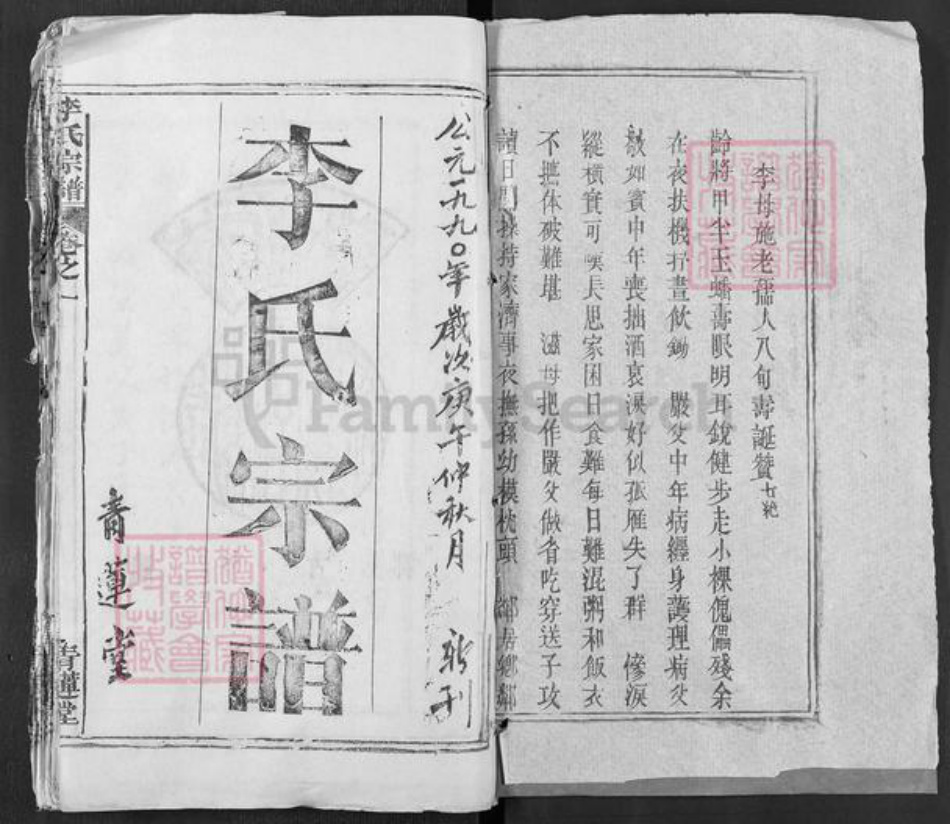 李母施老孺人八旬壽誕贊 七絕
齡將甲 玉 壽眼明耳銳健步走小棵傀儡殘余
在夜扶機 晝飲鋤 嚴父中年病纏身護理病父
敬如賓中年喪拙酒哀淚好似孤雁失了群 慘淚
縱橫實可嘆長思家困日食難每日難混粥和飯衣
不 体破難堪 滋母把作嚴父做省吃穿送子攻
讀日 操持家濟事夜撫孫幼模枕頭 鄰居鄉鄰
公元一九九〇年歲次庚午仲秋月 新刊
李氏宗譜
青蓮堂
李氏宗譜 卷之一 青蓮堂
FamilySearch